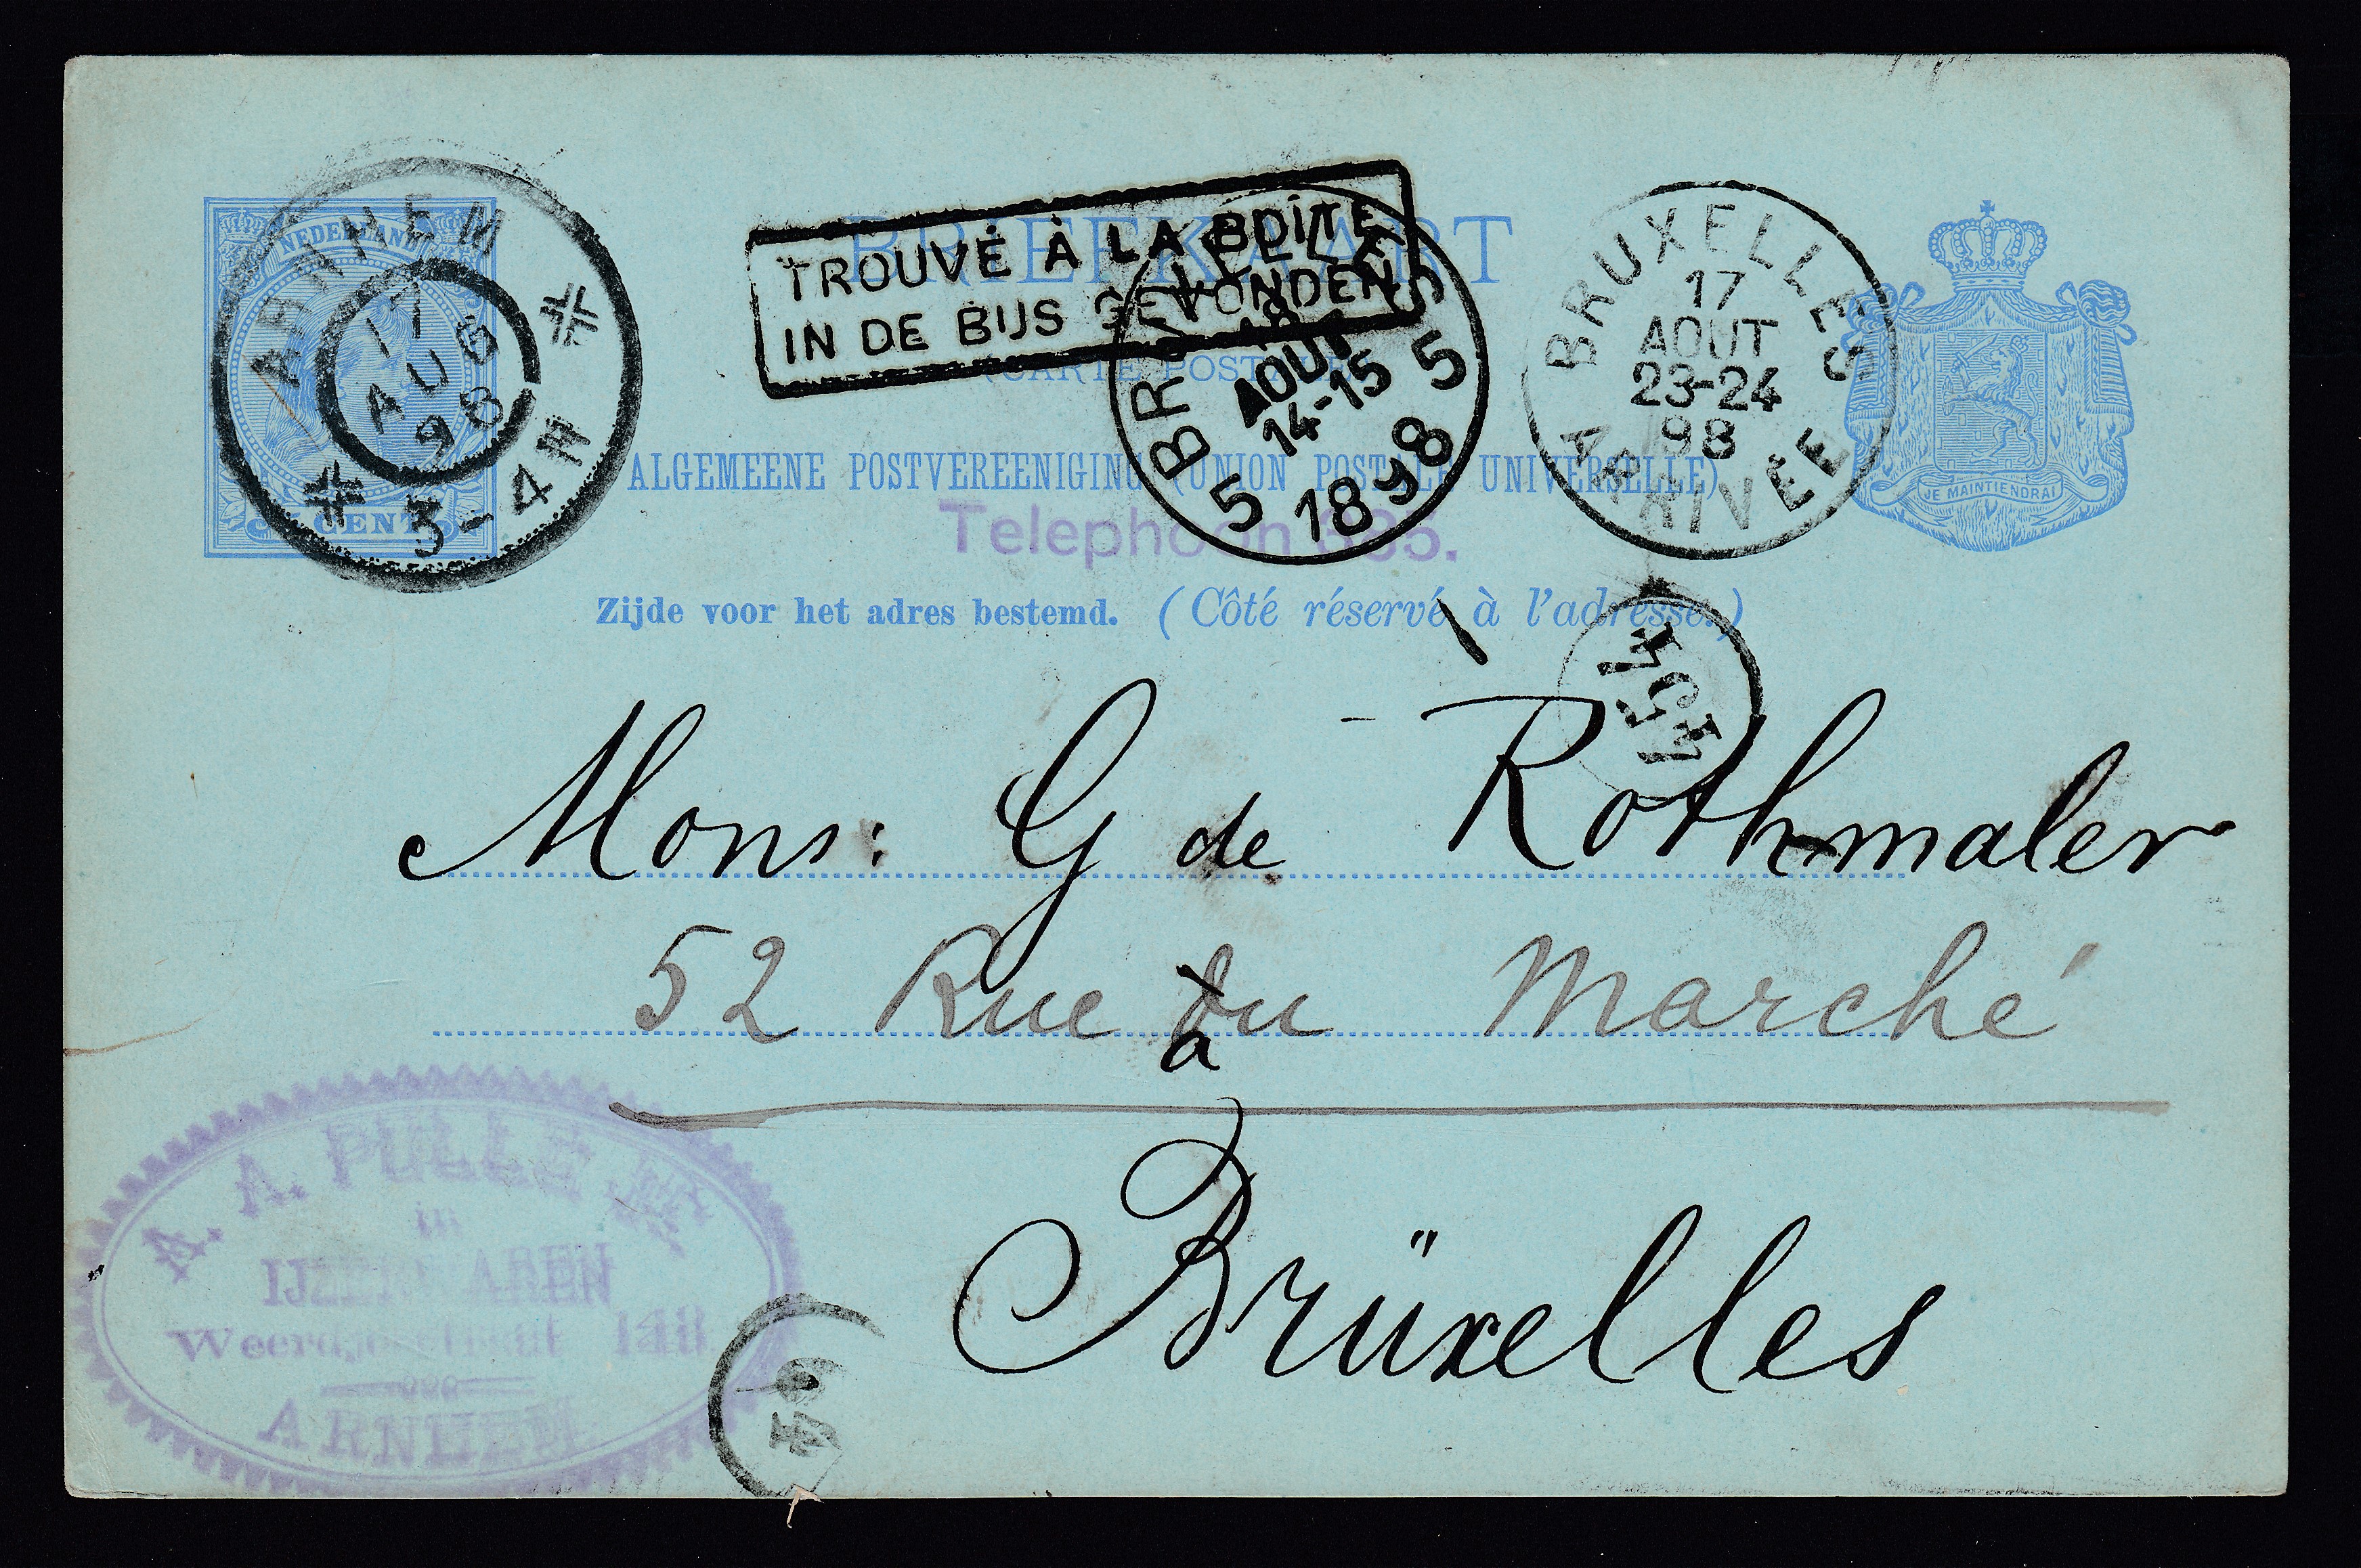 NEDERLAND
5 CENT
ARNHEM
17
AUG
98
3-4N
TROUVÉ À LA BOÎTE
IN DE BUS GEVONDEN
BRIEFKAART
(CARTE POSTALE)
BRUXELLES
18
AOUT
14-15
5 1898 5
BRUXELLES
17
AOUT
23-24
98
ARRIVÉE
JE MAINTIENDRAI
ALGEMEENE POSTVEREENIGING (UNION POSTALE UNIVERSELLE)
Telephoon
Zijde voor het adres bestemd. (Côté réservé à l'adresse.)
Mons: G de Rothmaler
52 Rue du Marché
a
Brüxelles
A. A. PULLE JR
in
IJZERWAREN
ARNHEM